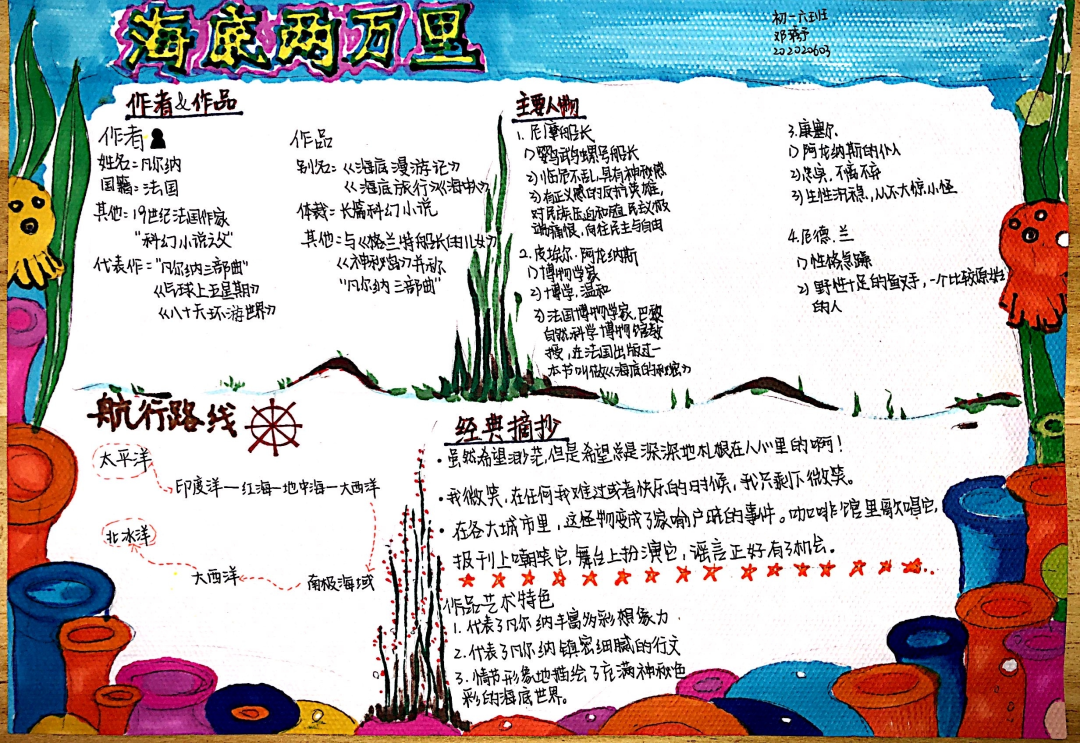 海底两万里
初一六班
202020603
作者&作品
作者
姓名:凡尔纳
国籍:法国
其他:19世纪法国作家
"科幻小说之父"
代表作:"凡尔纳三部曲"
《气球上五星期》
《八十天环游世界》
作品
别名:《海底漫游记》
《海底旅行》《海中人》
体裁:长篇科幻小说
其他:与《格兰特船长的儿女》
《神秘岛》并称
"凡尔纳三部曲"
主要人物
1.尼摩船长
1)鹦鹉螺号船长
2)临危不乱,具有神秘感
3)有正义感的反抗英雄,
对民族压迫和殖民主义极
端痛恨,向往民主与自由
2.皮埃尔.阿龙纳斯
1)博物学家
2)博学,温和
3)法国博物学家,巴黎
自然科学博物馆教
授,在法国出版过一
本书叫做《海底的秘密》
3.康塞尔
1)阿龙纳斯的仆人
2)忠实,不离不弃
3)生性沉稳,从不大惊小怪
4.尼德.兰
1)性格急躁
2)野性十足的鱼叉手,一个比较原始
的人
航行路线
太平洋
印度洋—红海—地中海—大西洋
北冰洋
大西洋
南极海域
经典摘抄
·虽然希望渺茫,但是希望总是深深地扎根在人心里的啊!
·我微笑,在任何我难过或者快乐的时候,我只剩下微笑。
·在各大城市里,这怪物变成了家喻户晓的事件。咖啡馆里歌唱它,
报刊上嘲笑它,舞台上扮演它,谣言正好有了机会。
作品艺术特色
1.代表了凡尔纳丰富多彩想象力
2.代表了凡尔纳镇密细腻的行文
3.情节形象地描绘了充满神秘色
彩的海底世界。